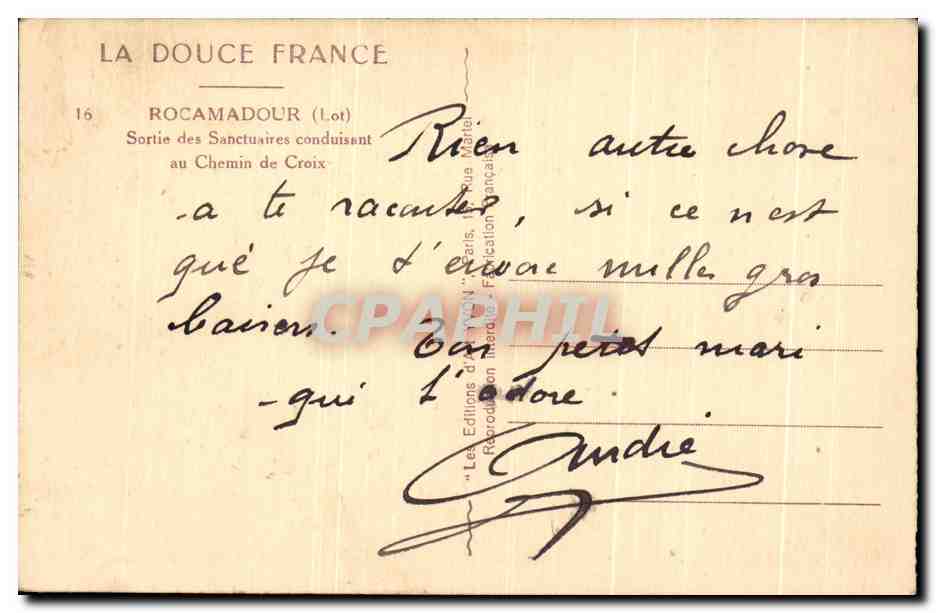 LA DOUCE FRANCE
16 ROCAMADOUR (Lot)
Sortie des Sanctuaires conduisant
au Chemin de Croix
Rien autre chose
a te raconter, si ce n'est
que je t'envoie milles gros
baisers. Ton petit mari
qui t'adore.
André
"Les Editions d'Art YVON", Paris, Rue Martel
Reproduction Interdite - Fabrication Française
CPAPHIL